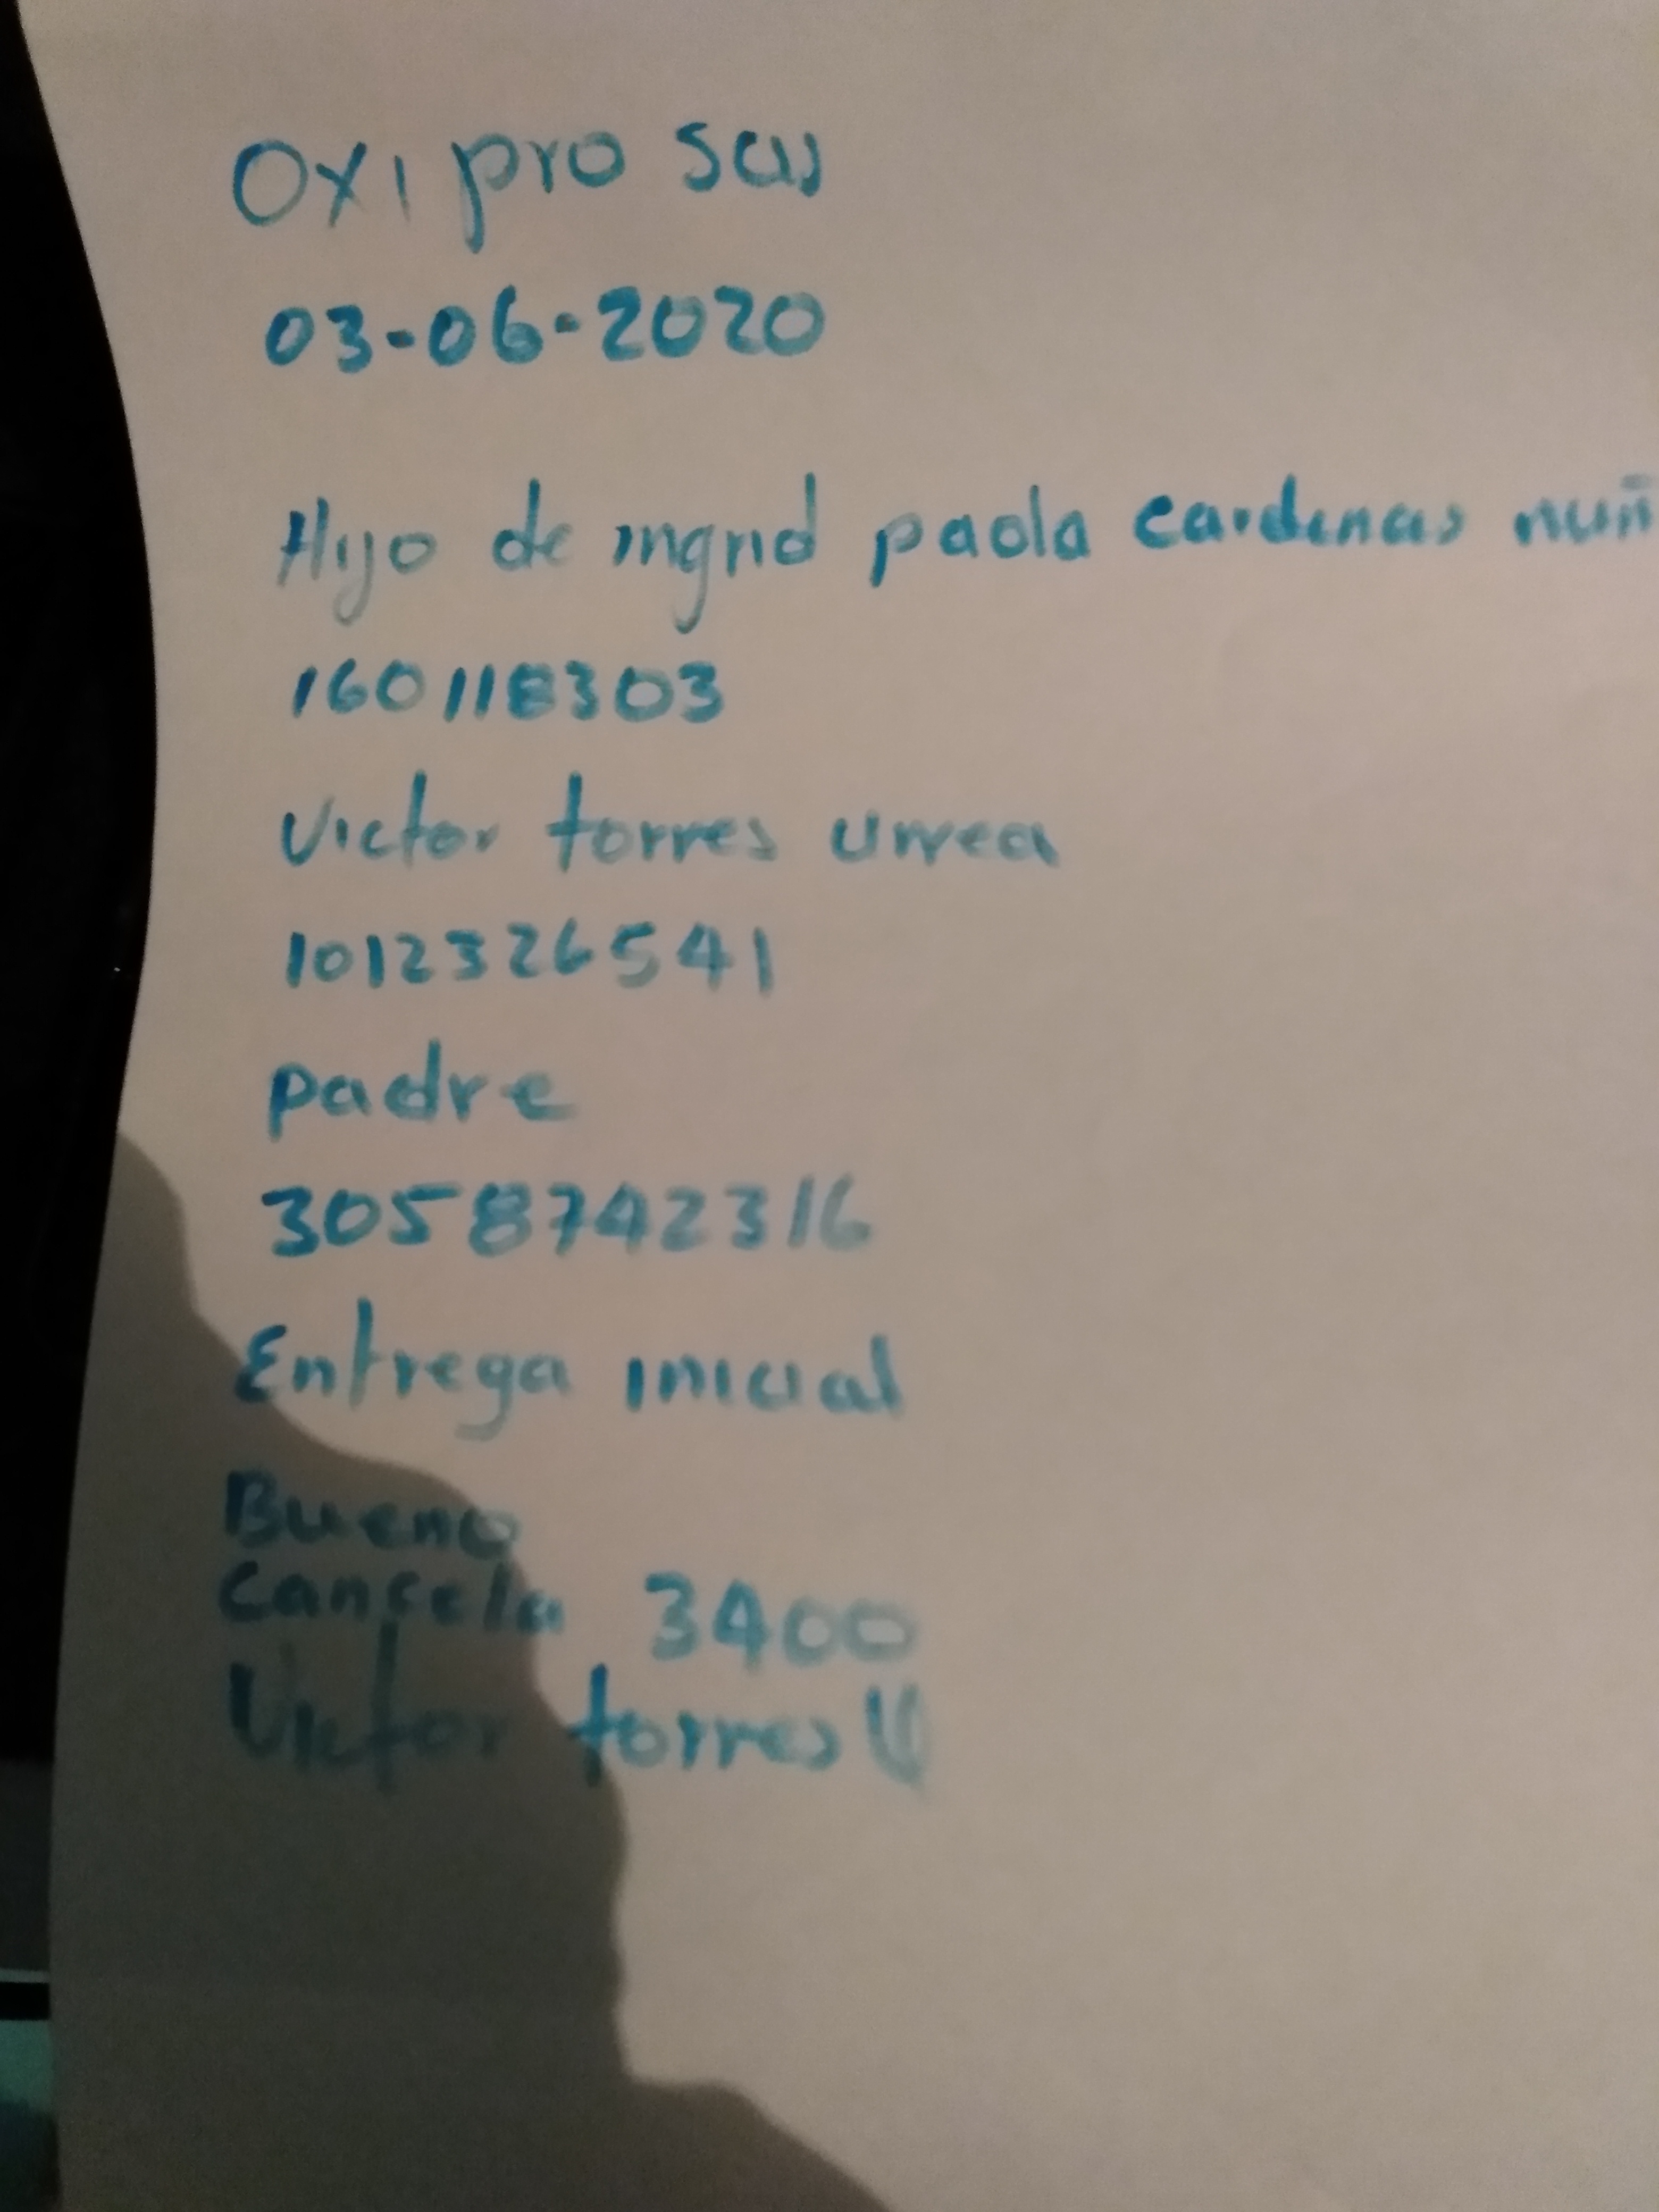 Oxi pro sas
03-06-2020
Hijo de ingrid paola cardenas nuñ
160118303
Victor torres urrea
1012326541
padre
3058742316
Entrega inicial
Bueno
Cancela 3400
Victor torres U